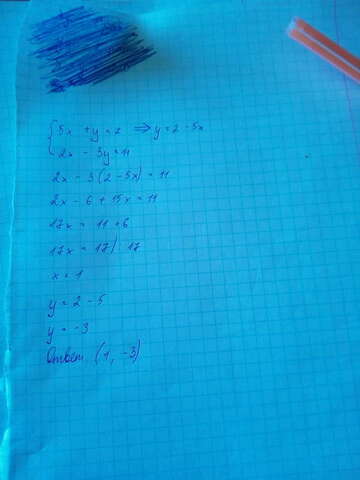 {5x + y = 2 => y = 2 - 5x
2x - 3y = 11
2x - 3(2 - 5x) = 11
2x - 6 + 15x = 11
17x = 11 + 6
17x = 17 | 17
x = 1
y = 2 - 5
y = -3
Ответ. (1, -3)